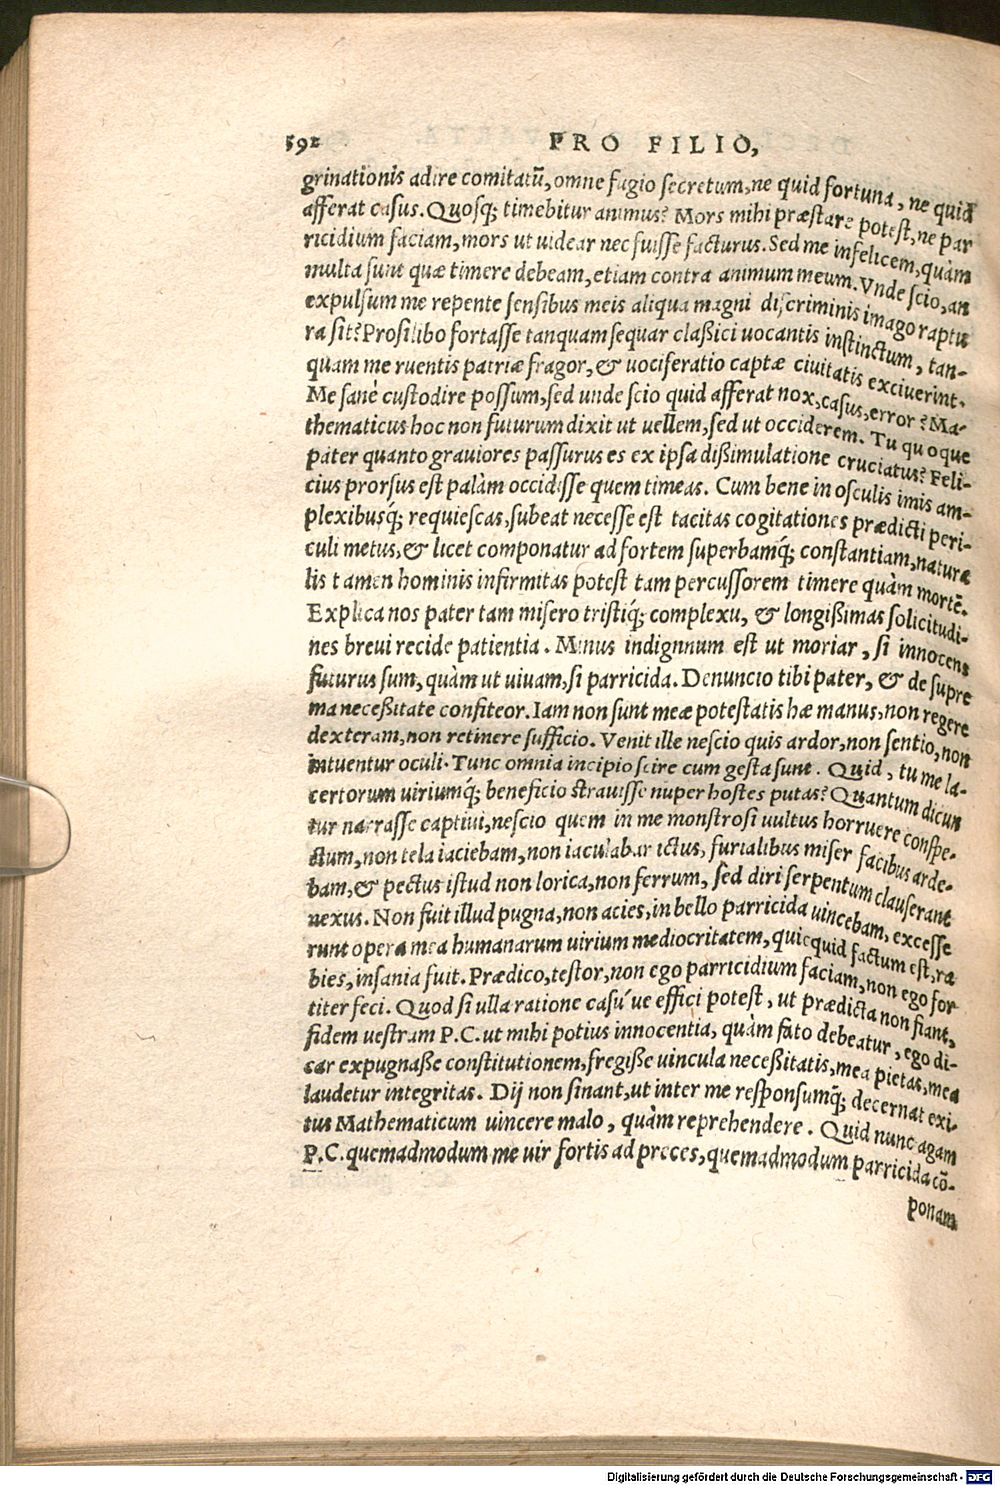 592 PRO FILIO,
grinationis adire comitatũ, omne fugio secretum, ne quid fortuna, ne quid
afferat casus. Quosq; timebitur animus? Mors mihi præstare potest, ne par
ricidium faciam, mors ut uidear nec fuisse facturus. Sed me infelicem, quàm
multa sunt quæ timere debeam, etiam contra animum meum. Vnde scio, an
expulsum me repente sensibus meis aliqua magni discriminis imago raptu
ra sit? Prosilibo fortasse tanquam sequar claßici uocantis instinctum, tan-
quam me ruentis patriæ fragor, & uociferatio captæ ciuitatis exciuerint.
Me sanè custodire possum, sed unde scio quid afferat nox, casus, error? Ma-
thematicus hoc non futurum dixit ut uellem, sed ut occiderem. Tu quoque
pater quanto grauiores passurus es ex ipsa dißimulatione cruciatus? Feli-
cius prorsus est palàm occidisse quem timeas. Cum bene in osculis imis am-
plexibusq́; requiescas, subeat necesse est tacitas cogitationes prædicti peri-
culi metus, & licet componatur ad fortem superbamq́; constantiam, natura
lis tamen hominis infirmitas potest tam percussorem timere quàm mortẽ.
Explica nos pater tam misero tristiq́; complexu, & longißimas solicitudi-
nes breui recide patientia. Minus indignnum est ut moriar, si innocens
futurus sum, quàm ut uiuam, si parricida. Denuncio tibi pater, & de supre
ma neceßitate confiteor. Iam non sunt meæ potestatis hæ manus, non regere
dexteram, non retinere sufficio. Venit ille nescio quis ardor, non sentio, non
intuentur oculi. Tunc omnia incipio scire cum gesta sunt. Quid, tu me la-
certorum uiriumq́; beneficio strauisse nuper hostes putas? Quantum dicun
tur narrasse captiui, nescio quem in me monstrosi uultus horruere conspe-
ctum, non tela iaciebam, non iaculabar ictus, furialibus miser facibus arde-
bam, & pectus istud non lorica, non ferrum, sed diri serpentum clauserant
nexus. Non fuit illud pugna, non acies, in bello parricida uincebam, excesse
runt opera mea humanarum uirium mediocritatem, quicquid factum est, ra
bies, insania fuit. Prædico, testor, non ego parricidium faciam, non ego for
titer feci. Quod si ulla ratione casu'ue effici potest, ut prædicta non fiant,
fidem uestram P.C. ut mihi potius innocentia, quàm fato debeatur, ego di-
car expugnaße constitutionem, fregiße uincula neceßitatis, mea pietas, mea
laudetur integritas. Dij non sinant, ut inter me responsumq́; decernat exi-
tus Mathematicum uincere malo, quàm reprehendere. Quid nunc agam
P.C. quemadmodum me uir fortis ad preces, quemadmodum parricida cõ-
ponam
Digitalisierung gefördert durch die Deutsche Forschungsgemeinschaft - DFG